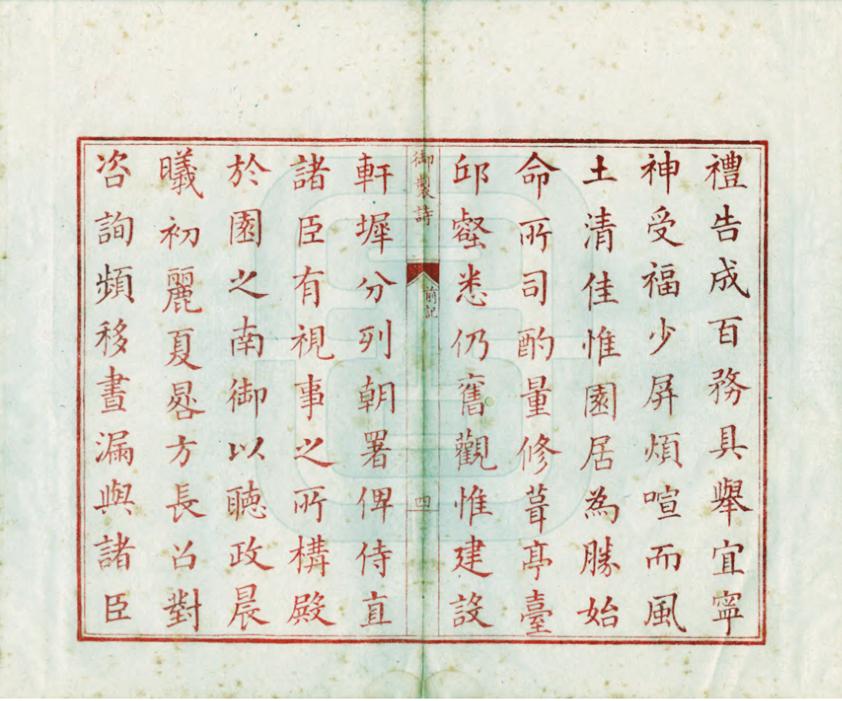 禮告成百務具舉宜寧
神受福少屏煩喧而風
土清佳惟園居為勝始
命所司酌量修葺亭臺
邱壑悉仍舊觀惟建設
御製詩 前記 四
軒墀分列朝署俾侍直
諸臣有視事之所構殿
於園之南御以聽政晨
曦初麗夏晷方長召對
咨詢頻移晝漏與諸臣